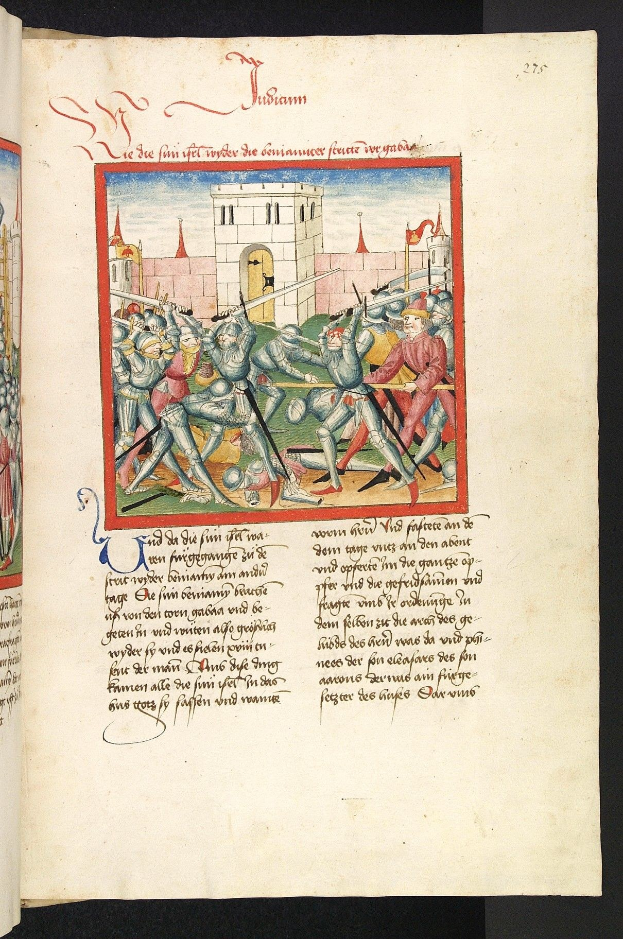 275
Judicum
Wie die sün isrl wyder die beniamiter stritten vor gabaa
Und da die sün isrl wa-
ren fürgegange zu dē
strit wyder beniamin am andrn
tage Die sün beniamin brachen
uß von den torn gabaa und be-
geten in und wüten also größlich
wyder sy und es fielen xviij tu-
sent der man Umb dise ding
kamen alle die sün isrl in das
hus gotz sy sassen und wainte
vorm hrn Und fastete an dē
dem tage untz an den abent
und opferte im die gantze op-
pfer und die gefridsamen und
fragte umb ir ordenunge zu
dem selben zit die arch des ge-
lübds des hrn was da und phi-
nees der sön eleasars des sön
aarons der was ain fürge-
setzter des huses Dar umb